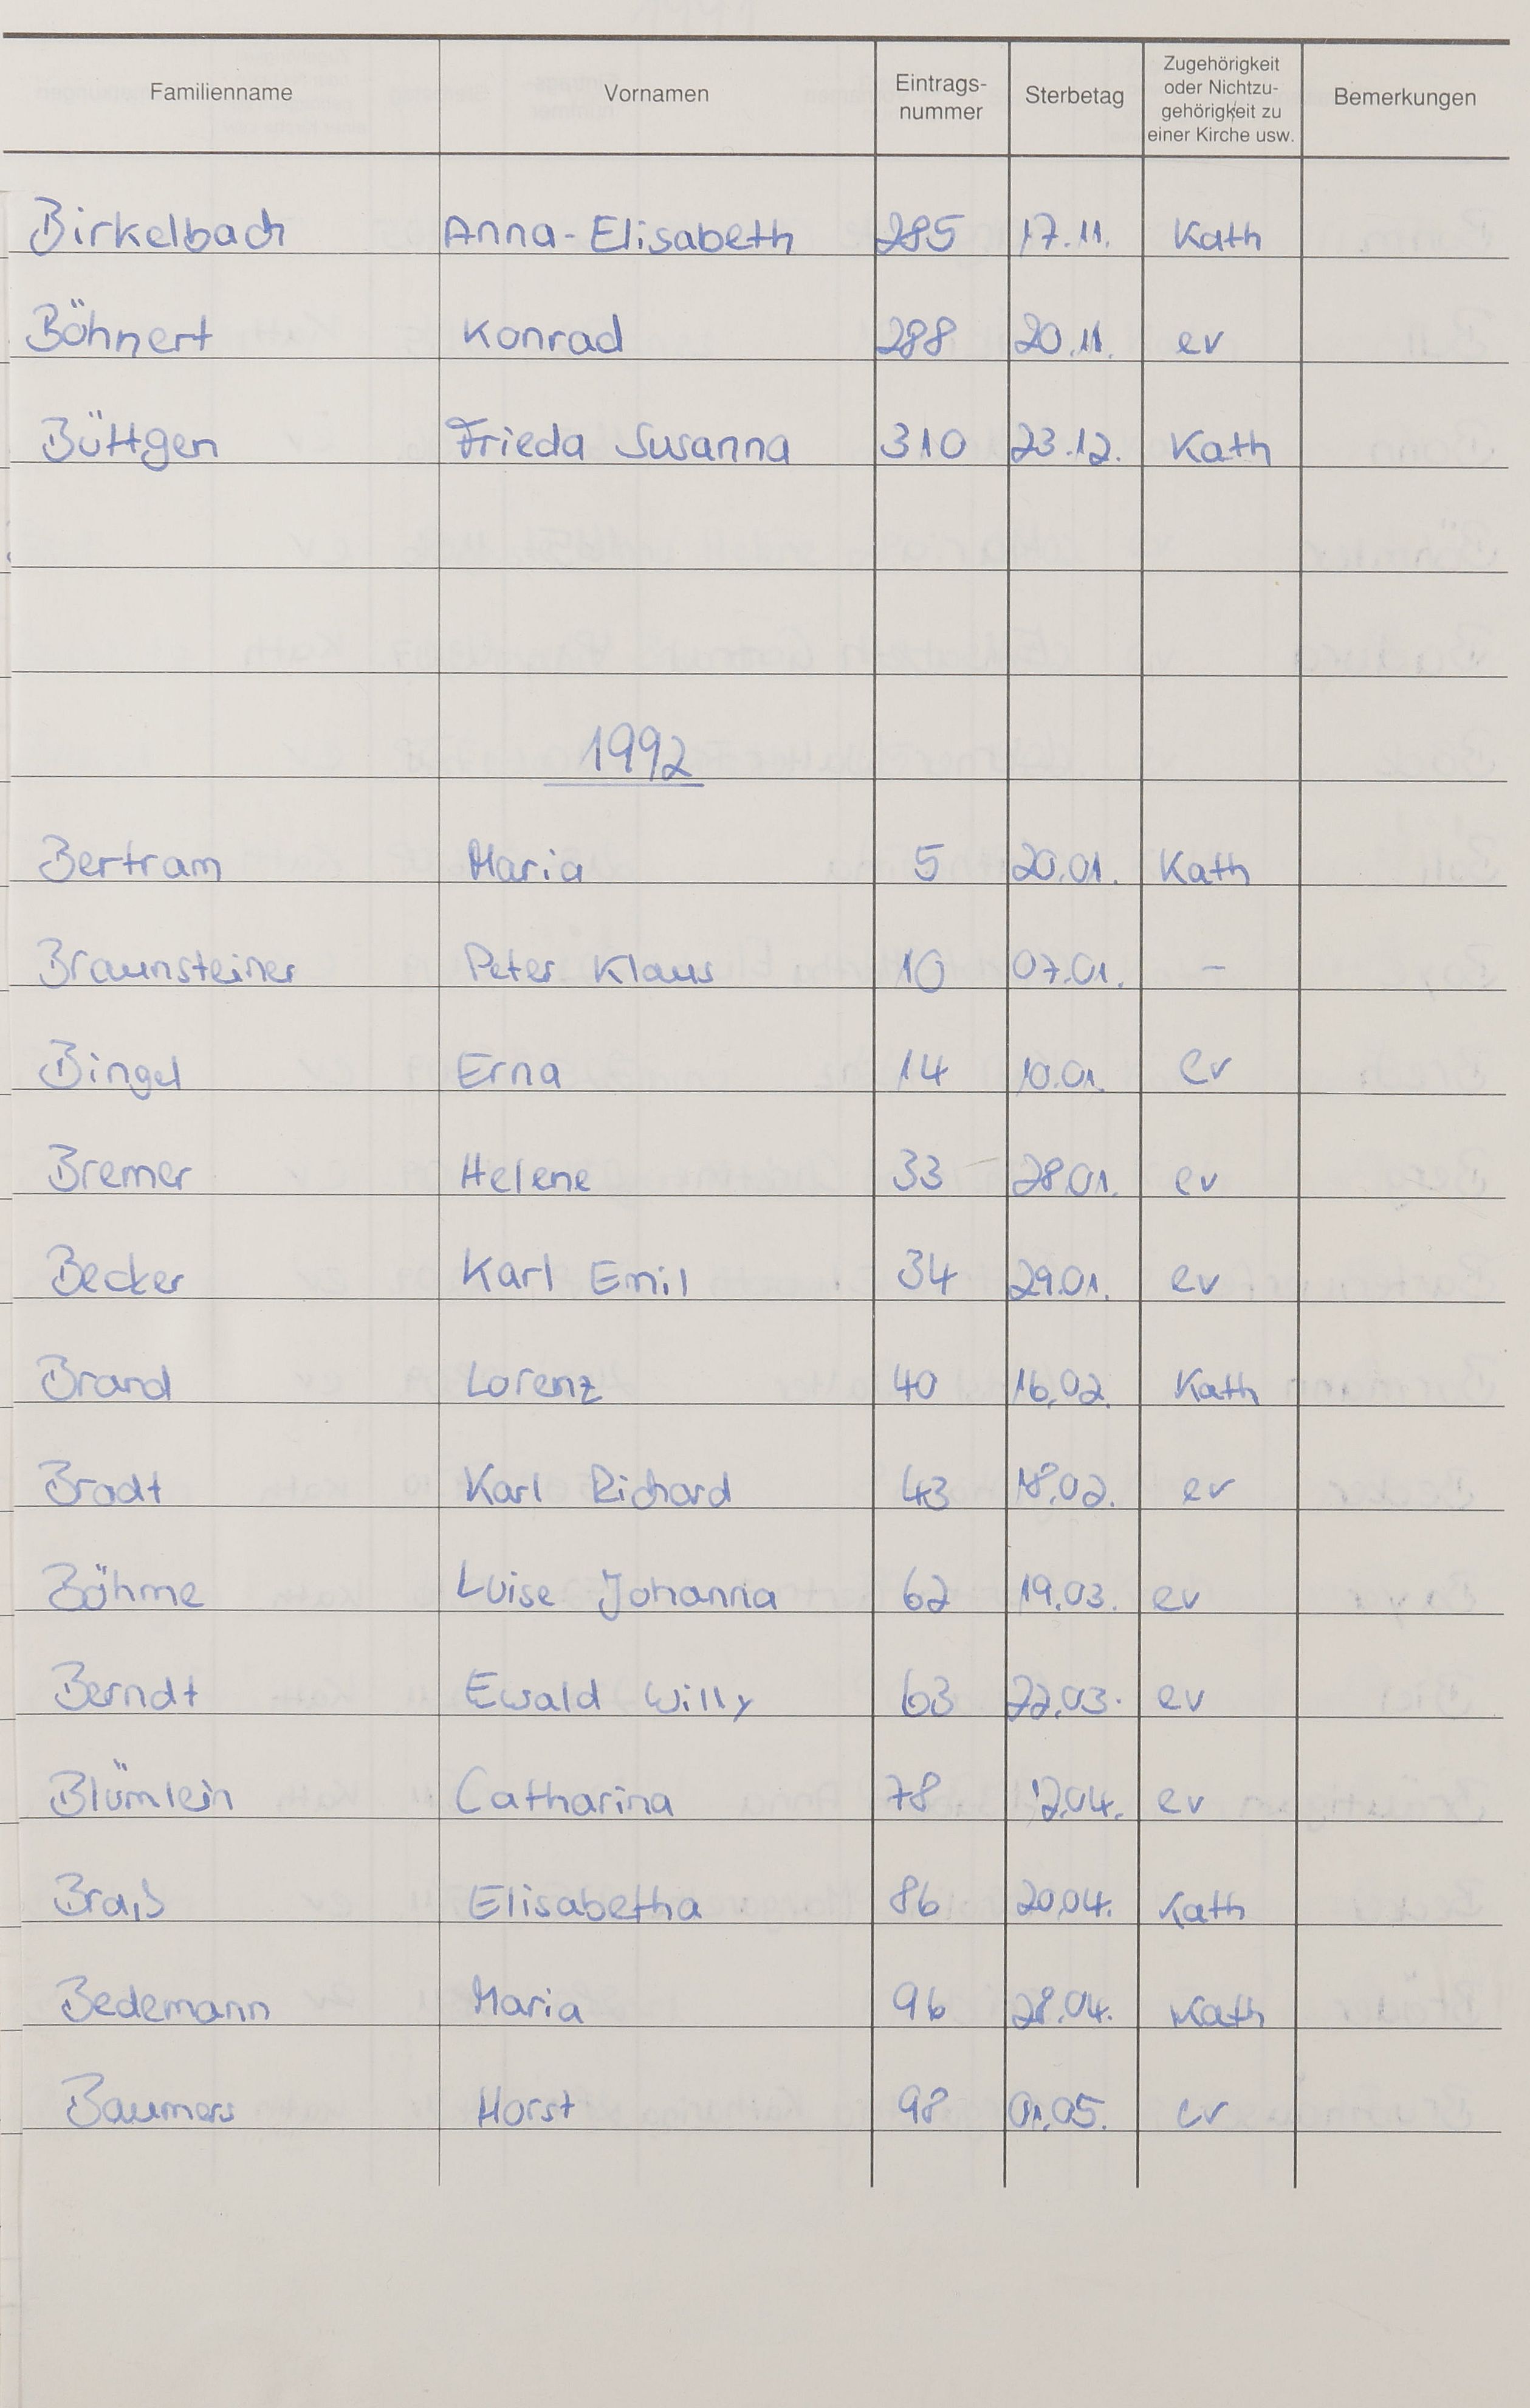 Familienname Vornamen Eintrags-nummer Sterbetag Zugehörigkeit oder Nichtzu-gehörigkeit zu einer Kirche usw. Bemerkungen
Birkelbach Anna-Elisabeth 285 17.11. Kath
Böhnert Konrad 288 20.11. ev
Büttgen Frieda Susanna 310 23.12. Kath
1992
Bertram Maria 5 20.01. Kath
Braunsteiner Peter Klaus 10 07.01. –
Bingel Erna 14 10.01. ev
Bremer Helene 33 28.01. ev
Becker Karl Emil 34 29.01. ev
Brand Lorenz 40 16.02. Kath
Bradt Karl Richard 43 18.02. ev
Böhme Luise Johanna 62 19.03. ev
Berndt Ewald Willy 63 22.03. ev
Blümlein Catharina 78 12.04. ev
Braiß Elisabetha 86 20.04. Kath
Bedemann Maria 96 28.04. Kath
Baumers Horst 98 01.05. ev